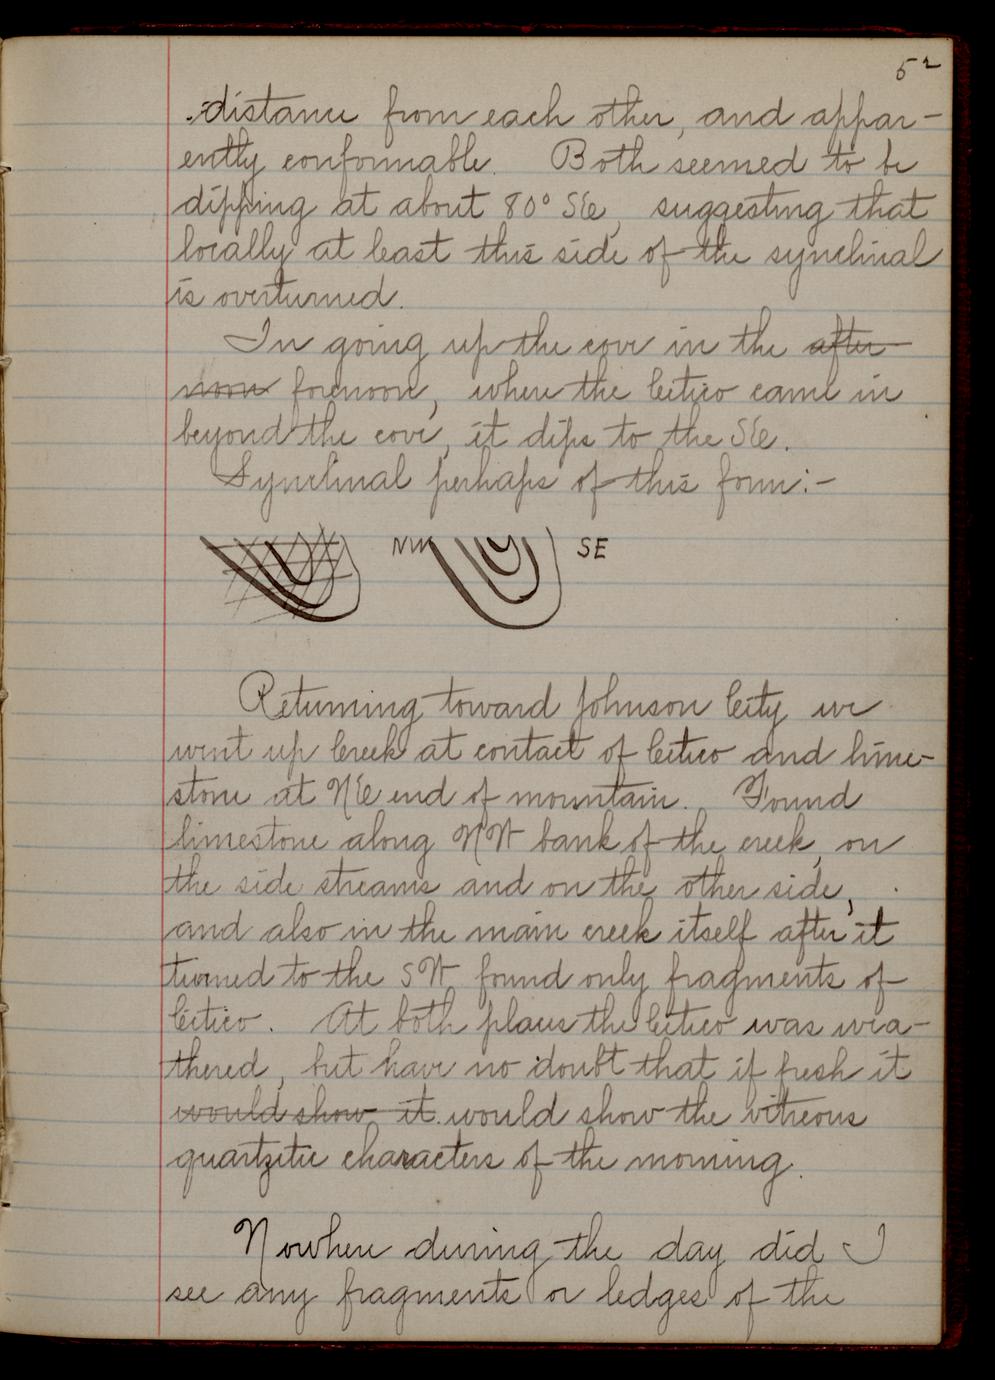 52
distance from each other, and appar-
ently conformable. Both seemed to be
dipping at about 80° SE, suggesting that
locally at least this side of the synclinal
is overturned.
In going up the cove in the after-
noon forenoon, where the Cetico came in
beyond the cove, it dips to the SE.
Synclinal perhaps of this form:-
NW SE
Returning toward Johnson City we
went up Creek at contact of Cetico and lime-
stone at NE end of mountain. Found
limestone along NW bank of the creek, on
the side streams and on the other side,
and also in the main creek itself after it
turned to the SW found only fragments of
Cetico. At both places the Cetico was wea-
thered, but have no doubt that if fresh it
would show it would show the vitreous
quartzitic characters of the morning.
Nowhere during the day did I
see any fragments or ledges of the